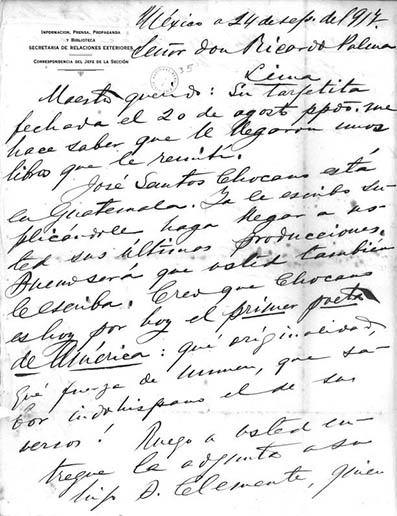 INFORMACION, PRENSA, PROPAGANDA
Y BIBLIOTECA
SECRETARIA DE RELACIONES EXTERIORES
CORRESPONDENCIA DEL JEFE DE LA SECCIÓN
México a 24 de sep. de 1917.
Señor don Ricardo Palma
Lima
35
Maestro querido: Su tarjetita
fechada el 20 de agosto ppdo. me
hace saber que le llegaron unos
libros que le remití.
José Santos Chocano está
en Guatemala. Ya le escribo su-
plicándole haga llegar a us-
ted sus últimas producciones.
Bueno será que usted también
le escriba. Creo que Chocano
es hoy por hoy el primer poeta
de América: qué originalidad,
qué fuerza de numen, que sa-
bor indohispano el de sus
versos! Ruego a usted en-
tregue la adjunta a su
hijo D. Clemente, quien